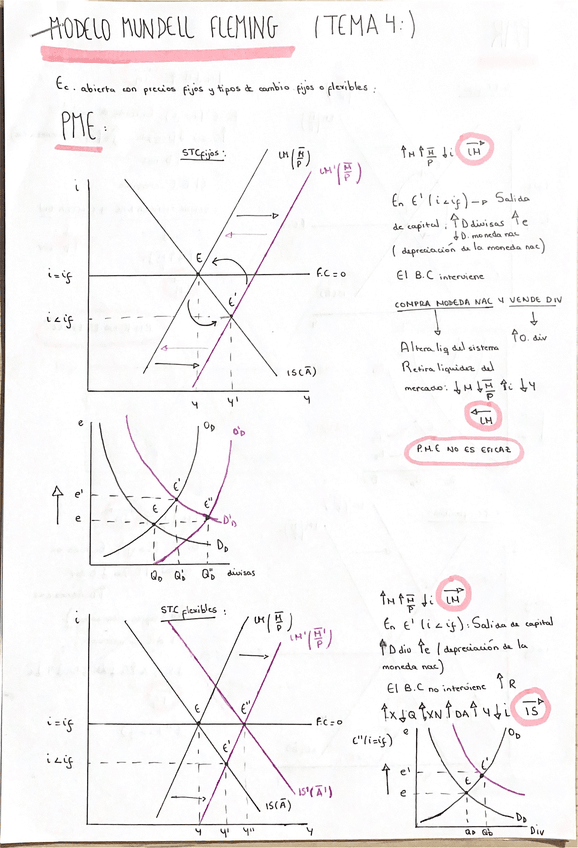 MODELO MUNDELL FLEMING (TEMA 4:)
Ec. abierta con precios fijos y tipos de cambio fijos o flexibles:
PME:
STC fijos:
LM (M̅/P)
LM' (M̅/P)
i
E
F.C=0
i=if
E'
i<if
IS(A̅)
Y Y' Y
↑M ↑M̅/P ↓i LM→
En E' (i<if) → Salida
de capital, ↑D divisas ↑e
↓D. moneda nac
(depreciación de la moneda nac)
El B.C interviene
COMPRA MODEDA NAC Y VENDE DIV
↓ ↓
Altera liq del sistema ↑O. div
Retira liquidez del
mercado: ↓M ↓M̅/P ↑i ↓Y
←LM
P.M.E NO ES EFICAZ
e
OD
O'D
e' E' E''
e E
D'D
DD
QD Q'D Q''D divisas
STC flexibles:
i
LM (M̅/P)
LM' (M̅'/P)
E E''
i=if
F.C=0
E'
i<if
IS'(A̅')
IS(A̅)
Y Y' Y'' Y
↑M ↑M̅/P ↓i LM→
En E' (i<if): Salida de capital
↑D div ↑e (depreciación de la
moneda nac)
El B.C no interviene ↑R
↑X ↓Q ↑XN ↑DA ↑Y ↓i IS→
E''(i=if)
e
OD
e' E'
e E
DD
QD Q'D Div